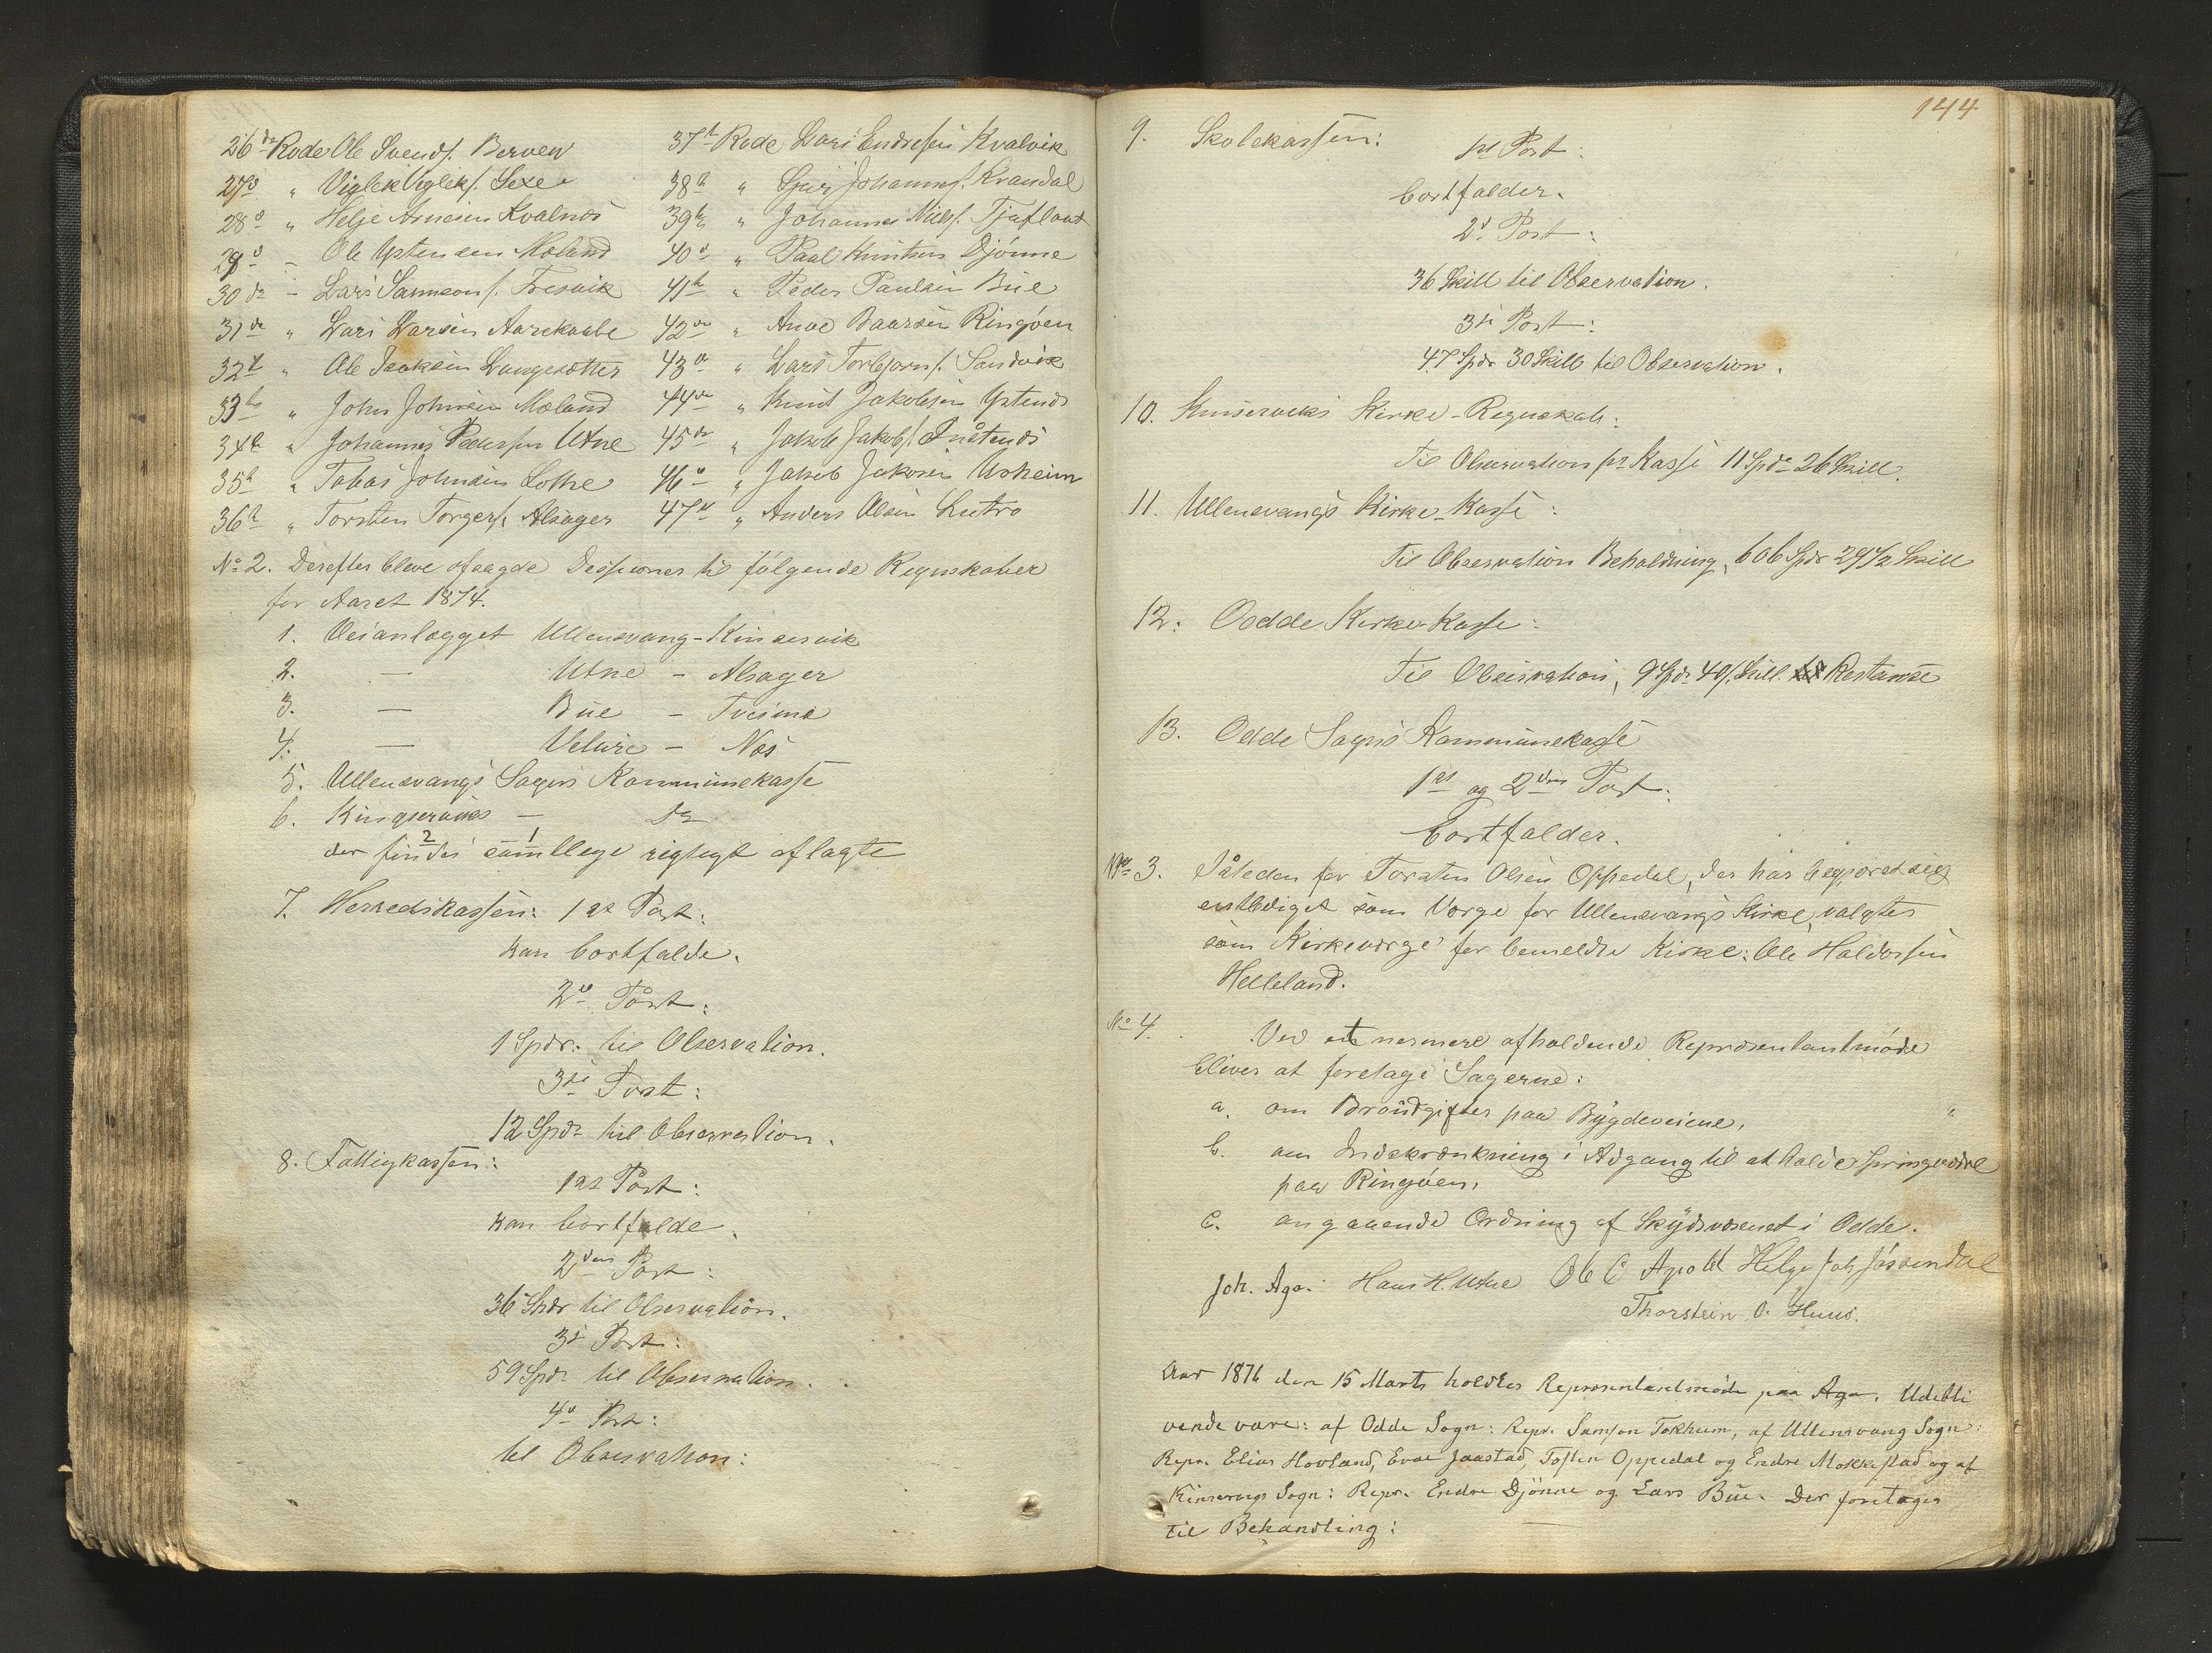 26de Rode Ole Svends. Berven
27de " Viglek Vigleks. Sexe
28de " Helje Arnesen Kvalnes
29de - Ole Ystensen Mæland
30de - Lars Samsons. Tresvik
31de " Lars Larsen Aarekaabe
32te " Ole Isaksen Langesæter
33te " John Johnsen Mæland
34te " Johannes Pedersen Utne
35te " Tobias Johnsen Lothe
36te " Torsten Torgers. Alsager
37te Rode Lars Endresen Kvalvik
38te " Johannes. Krandal
39te " Johannes Niels. Tjoflaat
40de " Paal Knutsen Djönne
41te " Peder Paulsen Büe
42de " Amve Baarsen Ringöen
43de " Lars Torbjörns. Sandvik
44de " Knut Jakobsen Ystenes
45de " Jakob Jakobs.
46de " Jakob Jakosen Usheim
47de " Anders Olsen Lutro
No 2. Derefter bleve afsagde Desisioner til fölgende Regnskaber
for Aaret 1874.
1. Veianlægget Ullensvang-Kinservik
2. — Utne - Alsager
3. — Büe - Tveisme
4. — Velure - Næs
5. Ullensvangs Sogns Kommünekasse
6. Kingserviks — Do
der findes samtlige rigtigt aflagte
7. Herredskassen: 1ste Post:
kan bortfalde.
2de Post:
1 Spdr. til Observation.
3die Post:
12 Spdr til Observation.
8. Fattigkassen:
1ste Post:
kan bortfalde.
2den Post:
36 Spdr til Observation.
3die Post:
59 Spdr til Observation.
4de Post:
til Observation:
144
9. Skolekassen:
1st Post:
bortfalder.
2d Post:
36 Skill til Observation.
3die Post:
47 Spdr 30 Skill til Observation.
10. Kinserviks Kirke-Regnskab:
Til Observation pr Kasse 11 Spdr 26 Skill.
11. Ullensvangs Kirke-Kasse:
Til Observation Beholdning, 606 Spdr 29 1/2 Skill
12. Oodde Kirke-Kasse:
Til Observation, 9 Spdr 40 Skill. Restanse
13. Odde Sogns Kommünekasse
1ste og 2den Post:
bortfalder.
No 3. Isteden for Torsten Olsen Oppedal, der har begjæret sig
entlediget som Værge for Ullensvangs Kirke, valgtes
som Kirkeværge for bemeldte Kirke: Ole Haldorsen
Helleland.
No 4. Ved et nærmere afholdende Repræsentantmöde
bliver at foretage Sagerne:
a. om Bröudgifter paa Bygdeveiene,
b. om Indskrænkning i Adgang til at holde Springvædre
paa Ringöen,
c. angaaende Ordning af Skydsvæsenet i Odde.
Joh. Aga. Hans H. Utne Ole O Apold Helge Joh Jösendal
Thorstein O. Huus.
Aar 1876 den 15 Marts holdtes Repræsentantmöde paa Aga. Udebli
vende vare: af Odde Sogn: Repr. Samson Tokheim, af Ullensvang Sogn:
Repr. Elias Hovland, Evae Jaastad, Tosten Oppedal og Endre Mokkestad og af
Kinservigs Sogn: Repr. Endre Djönne og Lars Büe. Der foretages
til Behandling: